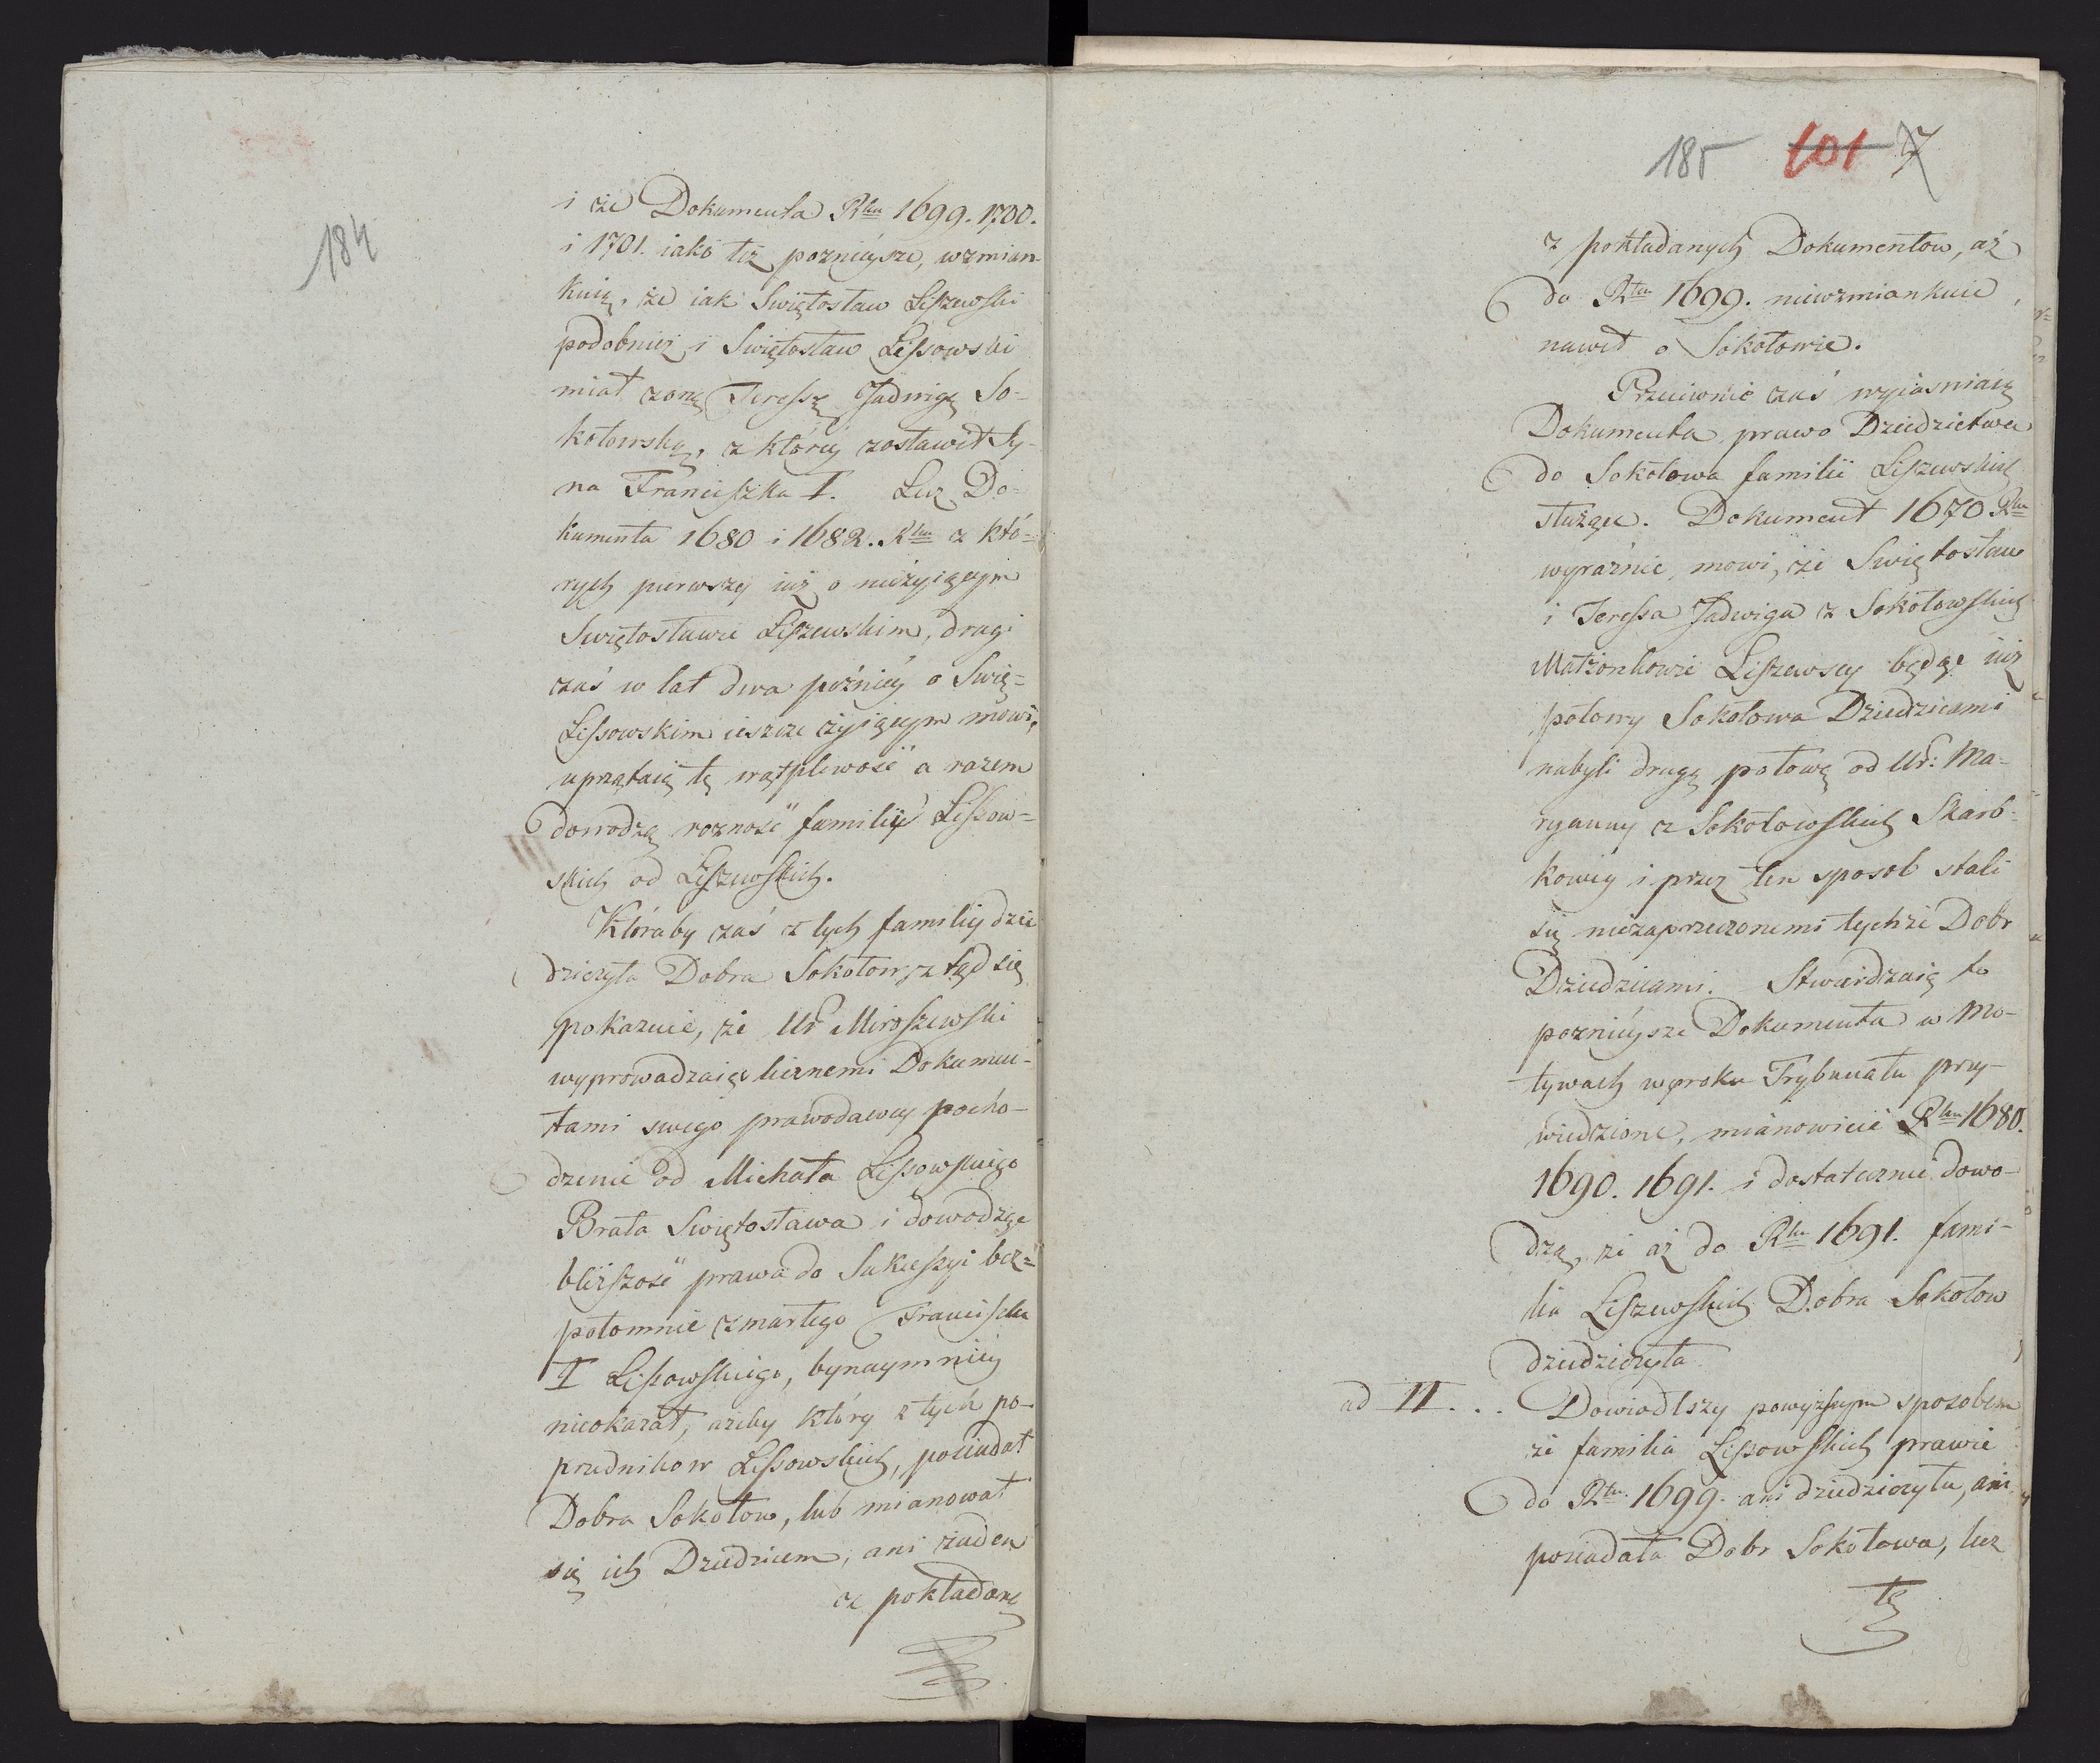 184
i że Dokumenta Rku 1699. 1700.
i 1701. iako też poznieysze, wzmian-
kuią, że iak Swiętosław Liszewski
podobniez i Swiętosław Lissowski
miał żonę Teressę Jadwigę So-
kołowską, z którey zostawił Sy-
na Franciszka I. Lecz Do-
kumenta 1680 i 1682. Rku z któ-
rych pierwszy iuż o nieżyiącym
Swiętosławie Liszewskim, drugi
zaś w lat dwa poźniey o Swię-
Lissowskim ieszcze żyiącym mówi,
uprzątaią tę wątpliwość a razem
dowodzą rozność familiy Lissow-
skich od Liszewskich.
Któraby zaś z tych familiy dzie
dziczyła Dobra Sokołow, ztąd się
pokazuie, że Ur Miroszewski
wyprowadzaiąc licznemi Dokumen-
tami swego prawodawcy pocho-
dzenie od Michała Lissowskiego
Brata Swiętosława i dowodząc
bliższość prawa do Sukcessyi bez-
potomnie zmarłego Franciszka
I Lissowskiego, bynaymniey
nieokazał, ażeby który z tych po-
przedników Lissowskich, posiadał
Dobra Sokołow, lub mianował
się ich Dziedzicem, ani żaden
z pokładany
185 101 7
z pokładanych Dokumentow, aż
do Rku 1699. niewzmiankuie
nawet o Sokołowie.
Przeciwnie zaś wyiasniaią
Dokumenta prawo Dziedzictwa
do Sokołowa familii Liszewskich
służące. Dokument 1670 Rku
wyraźnie mowi, że Swiętosław
i Teressa Jadwiga z Sokołowskich
Małżonkowie Liszewscy będąc iuż
połowy Sokołowa Dziedzicami
nabyli drugą połowę od Ur: Ma-
ryanny z Sokołowskich Skarb-
kowey i przez ten sposob stali
się niezaprzeczonemi tychże Dobr
Dziedzicami. Stwierdzaią to
poznieysze Dokumenta w Mo-
tywach wyroku Trybunału przy-
wiedzione, mianowicie Rku 1680.
1690. 1691. i dostatecznie dowo-
dzą, że aż do Rku 1691. fami-
lia Liszewskich Dobra Sokołow
dziedziczyła.
ad II... Dowiodłszy powyższym sposobem
że familia Lissowskich prawie
do Rku 1699. ani dziedziczyła, ani
posiadała Dobr Sokołowa, lecz
tę